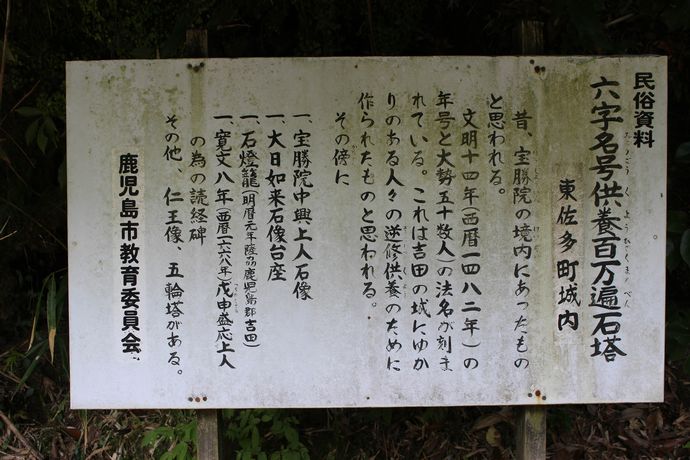 民俗資料
六字名号供養百万遍石塔
東佐多町城内
昔、宝勝院の境内にあったもの
と思われる。
文明十四年(西暦一四八二年)の
年号と大勢五十数人の法名が刻ま
れている。これは吉田の城にゆか
りのある人々の逆修供養のために
作られたものと思われる。
その傍に
一、宝勝院中興上人石像
一、大日如来石像台座
一、石燈籠(明暦元年隆盛鹿児島郡吉田)
一、寛文八年(西暦一六六八年)戊申盛応上人
の為の読経碑
その他、仁王像、五輪塔がある。
鹿児島市教育委員会